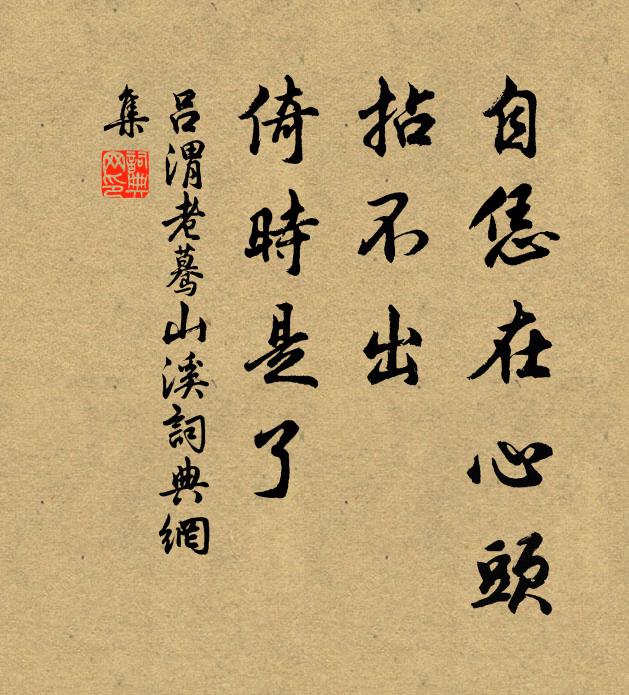 自恁在心頭
拈不出
倚時是了
吕渭老驀山溪詞典網
集
詞典
网印